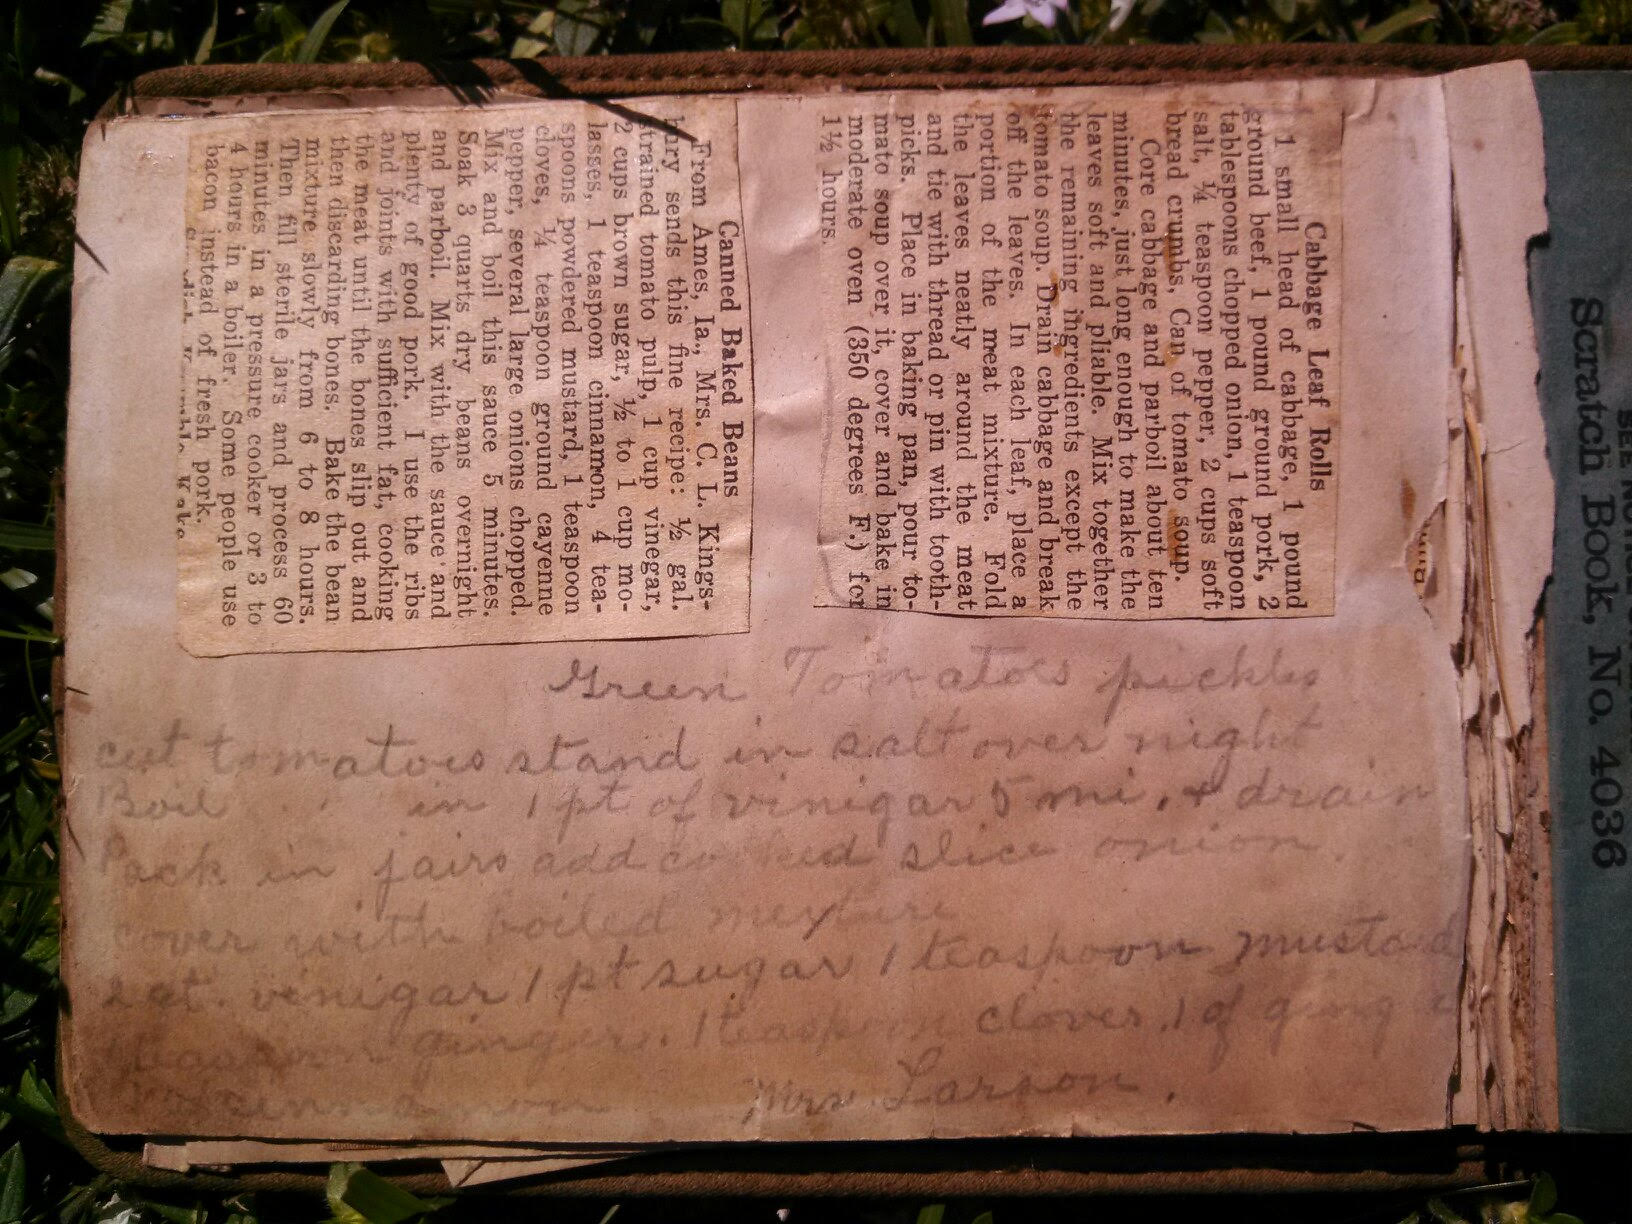 Cabbage Leaf Rolls
1 small head of cabbage, 1 pound
ground beef, 1 pound ground pork, 2
tablespoons chopped onion, 1 teaspoon
salt, ¼ teaspoon pepper, 2 cups soft
bread crumbs, Can of tomato soup.
Core cabbage and parboil about ten
minutes, just long enough to make the
leaves soft and pliable. Mix together
the remaining ingredients except the
tomato soup. Drain cabbage and break
off the leaves. In each leaf, place a
portion of the meat mixture. Fold
the leaves neatly around the meat
and tie with thread or pin with tooth-
picks. Place in baking pan, pour to-
mato soup over it, cover and bake in
moderate oven (350 degrees F.) for
1½ hours.
Canned Baked Beans
From Ames, Ia., Mrs. C. L. Kings-
bury sends this fine recipe: ½ gal.
strained tomato pulp, 1 cup vinegar,
2 cups brown sugar, ½ to 1 cup mo-
lasses, 1 teaspoon cinnamon, 4 tea-
spoons powdered mustard, 1 teaspoon
cloves, ¼ teaspoon ground cayenne
pepper, several large onions chopped.
Mix and boil this sauce 5 minutes.
Soak 3 quarts dry beans overnight
and parboil. Mix with the sauce and
plenty of good pork. I use the ribs
and joints with sufficient fat, cooking
the meat until the bones slip out and
then discarding bones. Bake the bean
mixture slowly from 6 to 8 hours.
Then fill sterile jars and process 60
minutes in a pressure cooker or 3 to
4 hours in a boiler. Some people use
bacon instead of fresh pork.
Green Tomatoes pickles
cut tomatoes stand in salt over night
Boil in 1 pt of vinigar 5 mi, + drain
Pack in jairs add slice onion.
cover with boiled mexture
2 qt. vinigar 1 pt sugar 1 teaspoon mustard
teaspoon ginger. 1 teaspoon clover. 1 of
cinnamon Mrs Larson.
Scratch Book, No. 4036